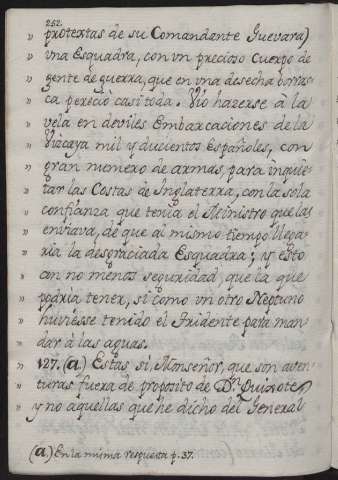 252.
" protextas de su Comandante Guevara)
" vna Esquadra, con vn precioso Cuerpo de
" gente de guerra, que en vna desecha borras-
" ca pereció casi toda. Vio hazerse à la
" vela en deviles Embarcaciones de la
" Vizcaya mil y ducientos Españoles, con
" gran numero de armas, para inquie-
" tar las Costas de Inglaterra, con la sola
" confianza que tenia el Ministro que las
" enviava, de que al mismo tiempo llega-
" ria la desgraciada Esquadra; y esto
" con no menos seguridad, que la que
" podria tener, si como vn otro Neptuno
" huviesse tenido el Tridente para man-
" dar à las aguas.
" 127. (a) Estas si, Monseñor, que son aven-
" turas fuera de proposito de Dn. Quixote,
" y no aquellas que he dicho del General
(a) En la misma respuesta p. 37.